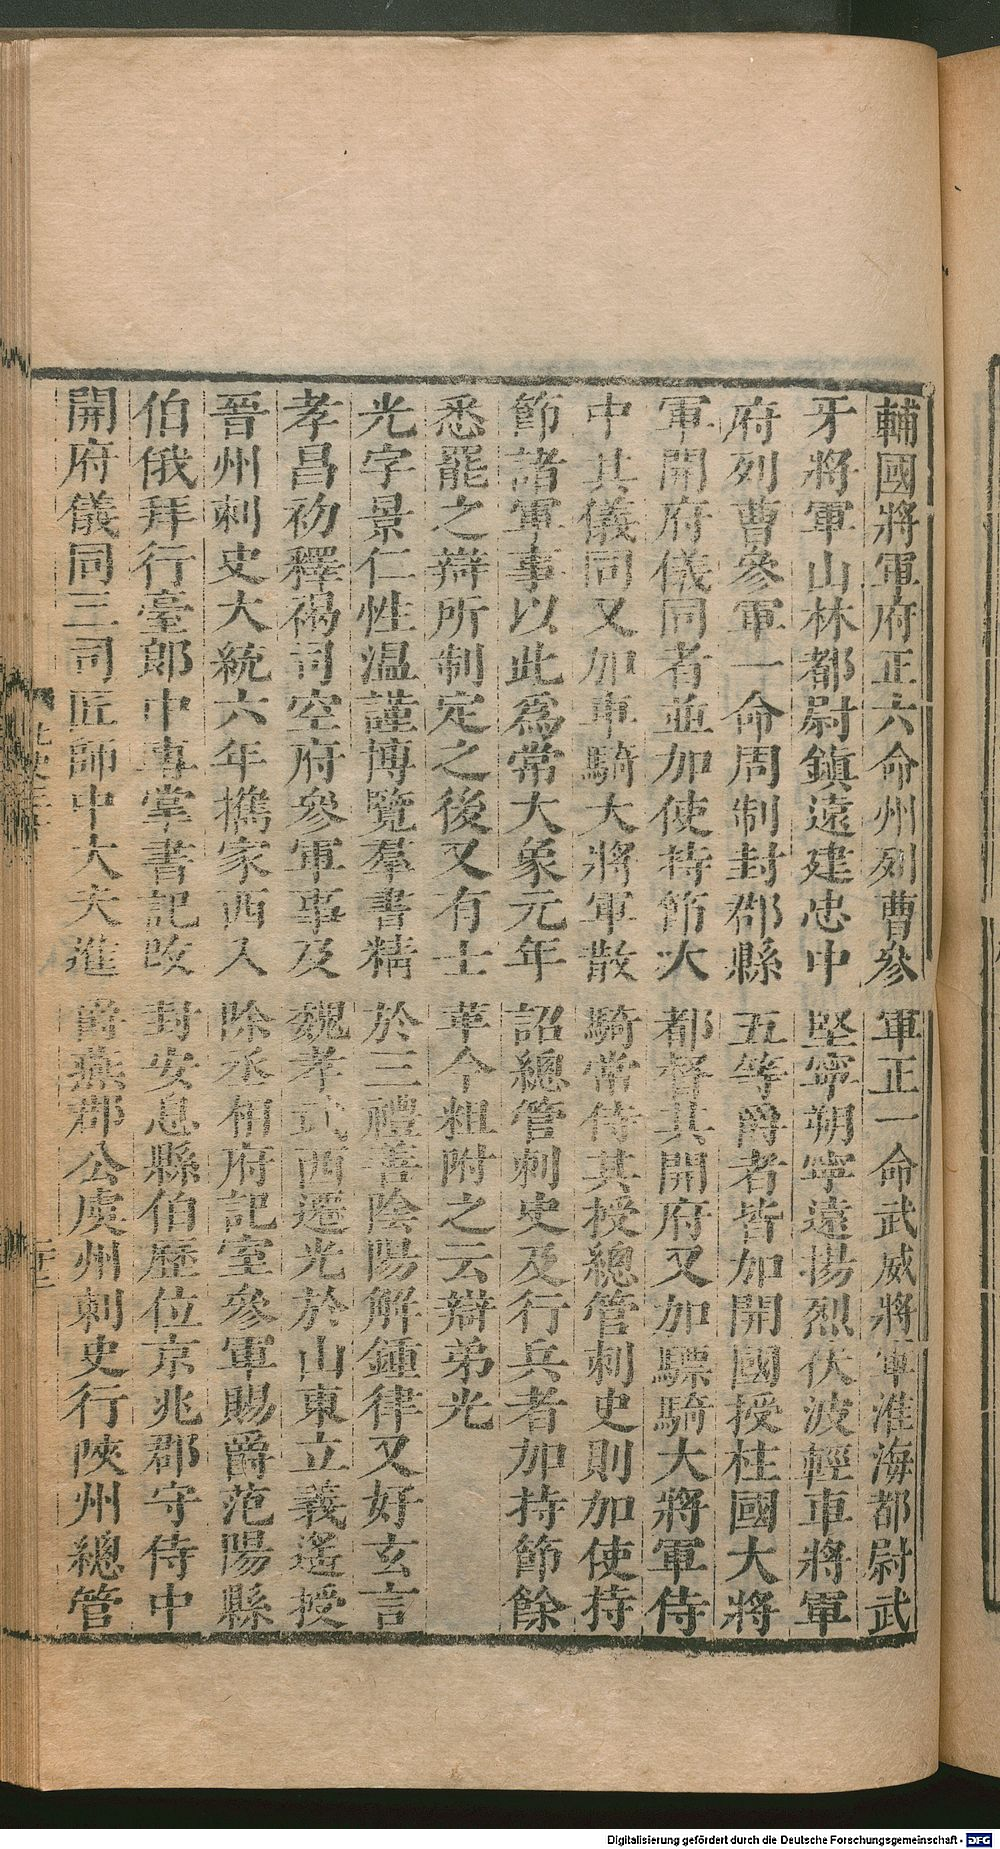 輔國將軍府正六命州列曹參軍正一命武威將軍淮海都尉武
牙將軍山林都尉鎮遠建忠中堅寧朔寧遠揚烈伏波輕車將軍
府列曹參軍一命周制封郡縣五等爵者皆加開國授柱國大將
軍開府儀同者並加使持節大都督其開府又加驃騎大將軍侍
中其儀同又加車騎大將軍散騎常侍其授總管刺史則加使持
節諸軍事以此爲常大象元年詔總管刺史及行兵者加持節餘
悉罷之辯所制定之後又有士革今粗附之云辯弟光
光字景仁性温謹博覽羣書精於三禮善陰陽解鍾律又好玄言
孝昌初釋褐司空府參軍事及魏孝武西遷光於山東立義遙授
晉州刺史大統六年攜家西入除丞相府記室參軍賜爵范陽縣
伯俄拜行臺郎中專掌書記改封安息縣伯歷位京兆郡守侍中
開府儀同三司匠師中大夫進爵燕郡公虞州刺史行陜州總管
Digitalisierung gefördert durch die Deutsche Forschungsgemeinschaft - DFG